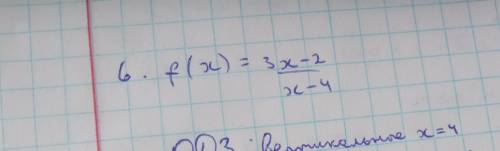 6. f(x) = 3x-2 / x-4
ОДЗ: вертикальные x=4